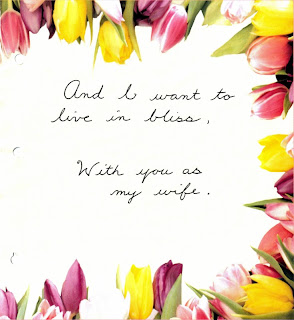 And I want to
live in bliss,
With you as
my wife.